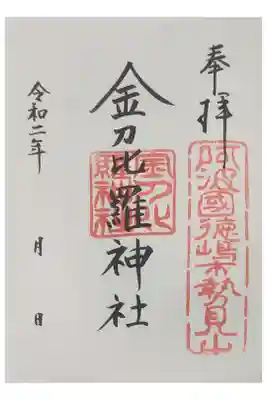 奉拝
阿波國徳嶋市勢見山
金刀比羅神社
金刀比羅神社
令和二年 月 日